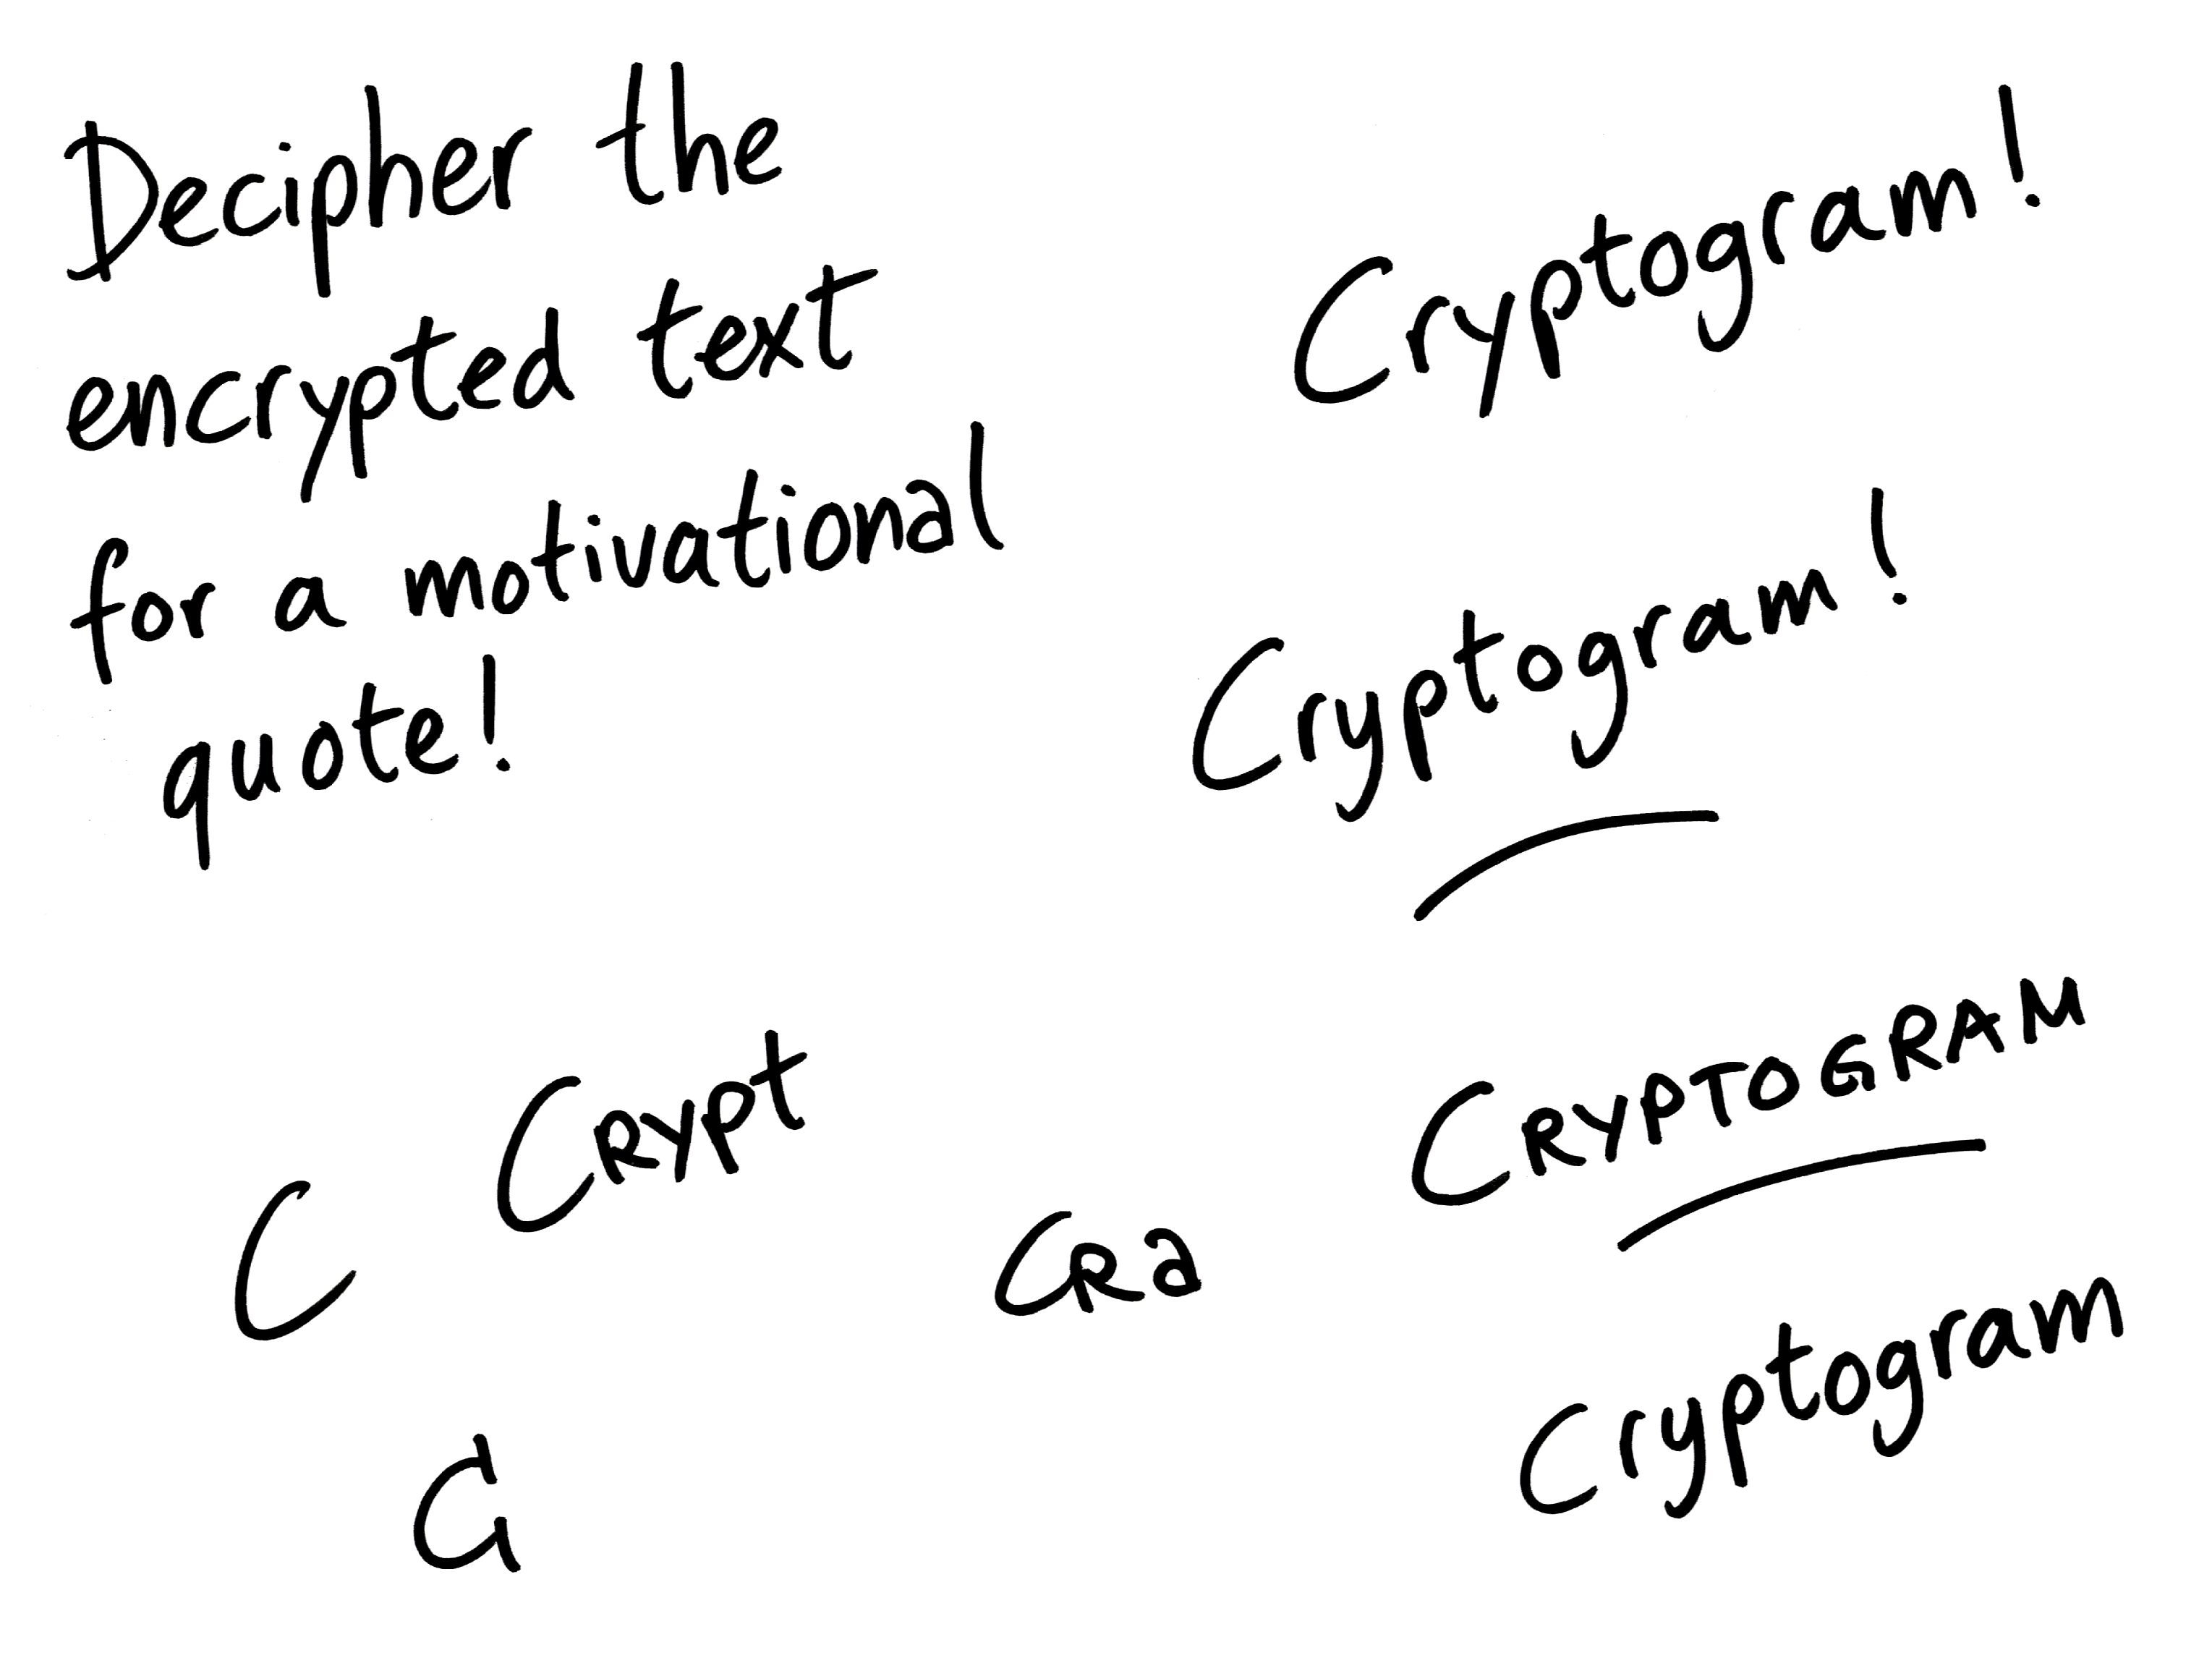 Decipher the
encrypted text
for a motivational
quote!
Cryptogram!
Cryptogram!
C
Crypt
CRa
G
CRYPTOGRAM
Cryptogram